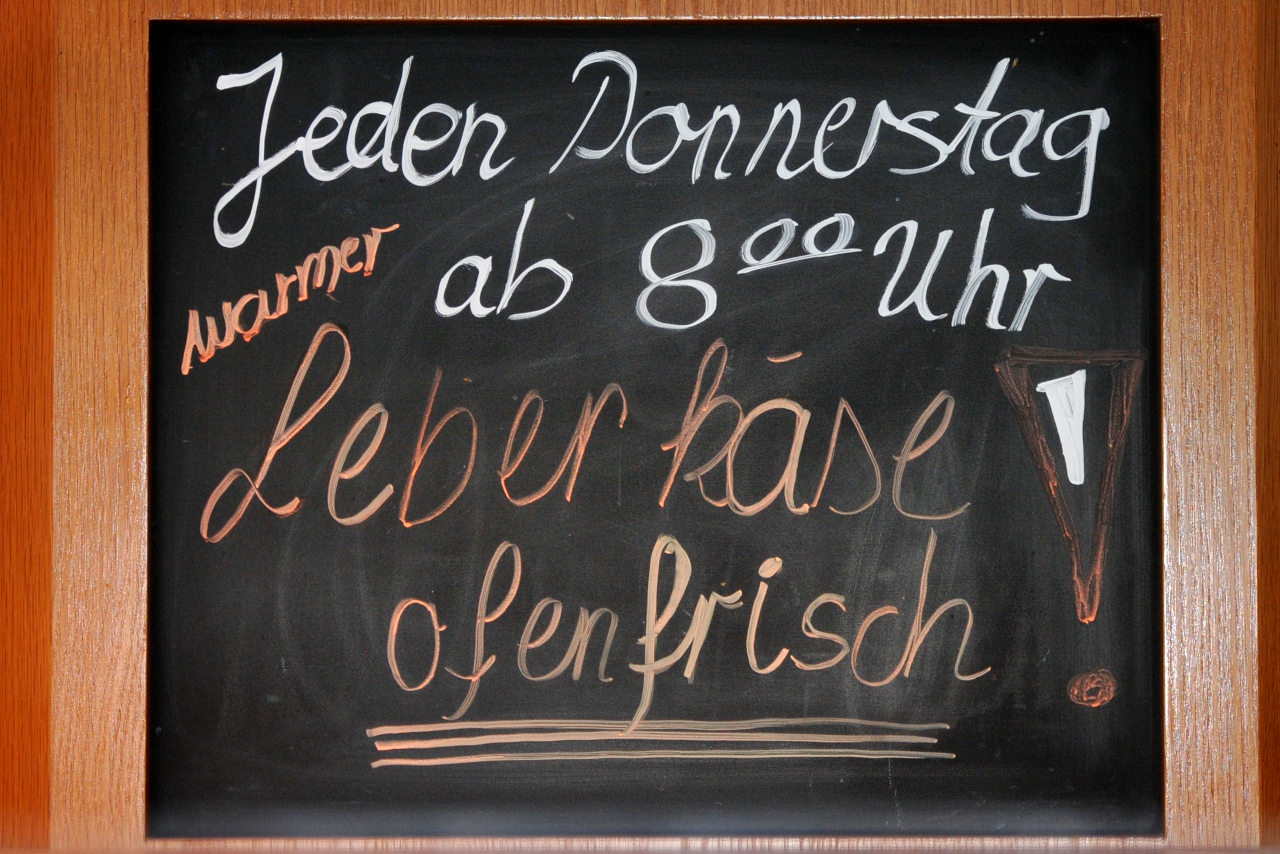 Jeden Donnerstag
ab 8⁰⁰ Uhr
warmer
Leberkäse !
ofenfrisch